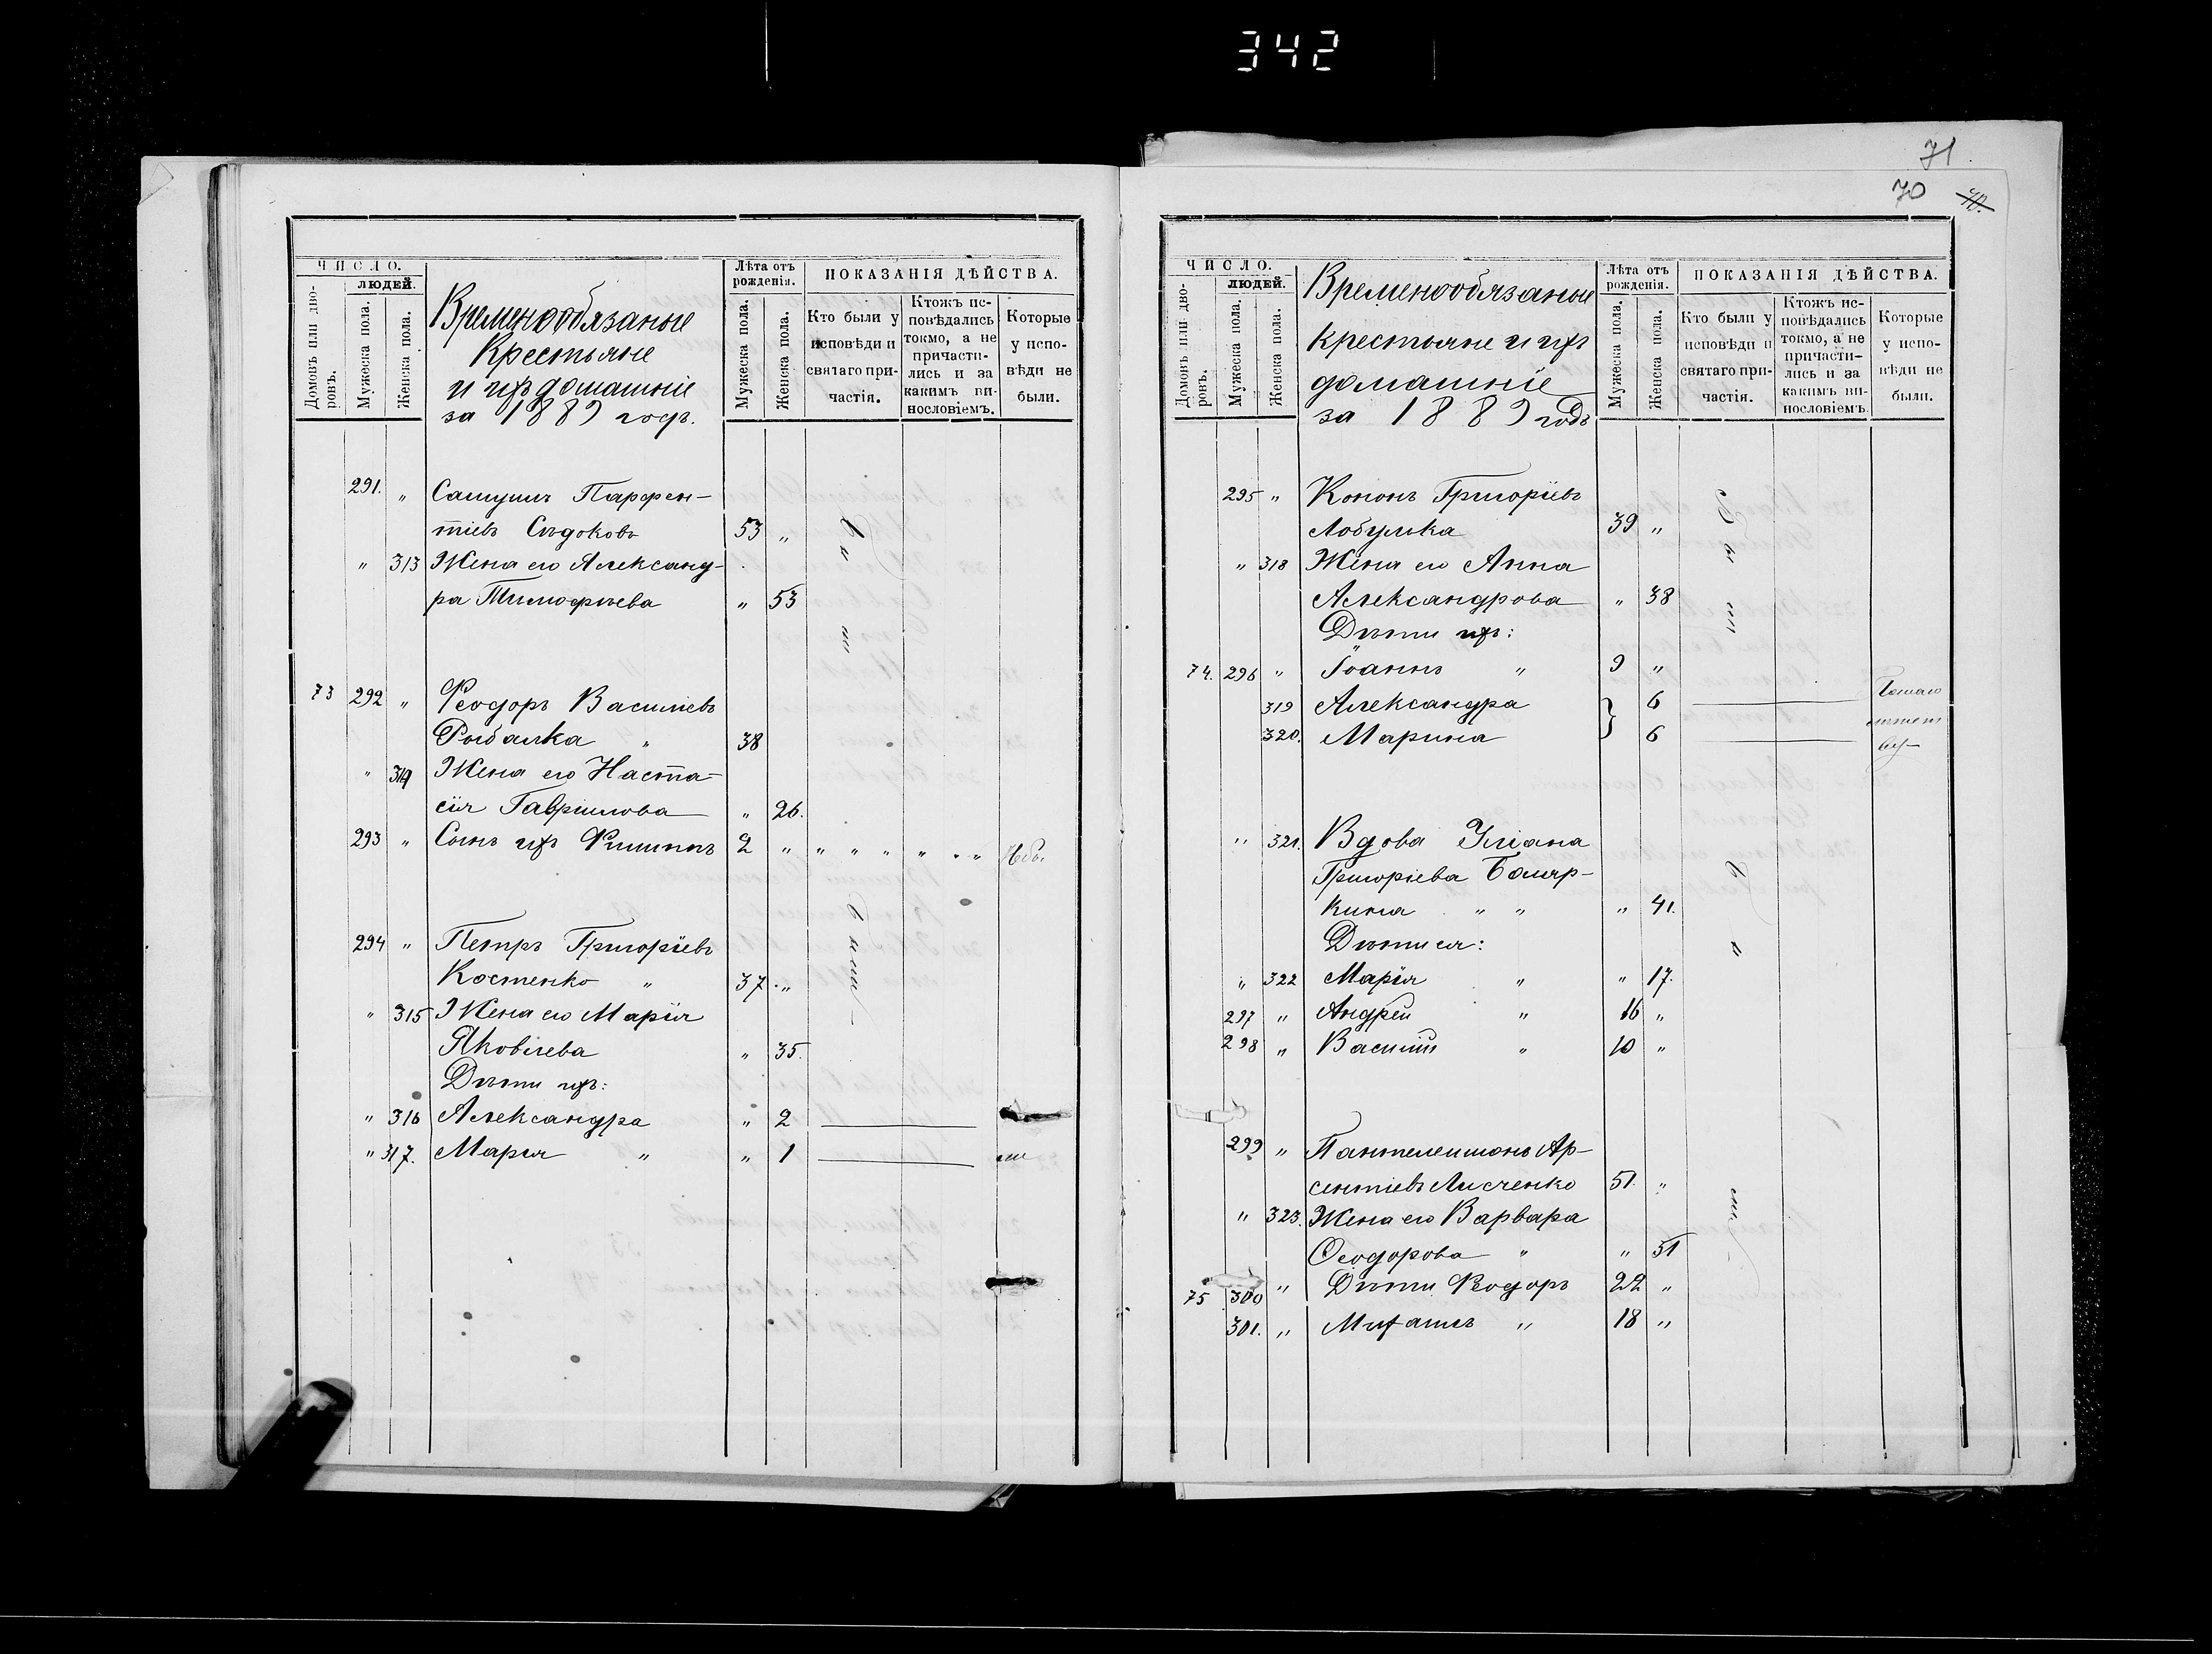 342
71
70
ЧИСЛО.
людей.
Домовъ или дворовъ.
Мужеска пола.
Женска пола.
Временообязаные
Крестьяне
и ихъ домашніе
за 1889 годъ.
Лѣта отъ рожденія.
Мужеска пола.
Женска пола.
ПОКАЗАНІЯ ДѢЙСТВА.
Кто были у исповѣди и святаго причастія.
Ктожъ исповѣдались токмо, а не причастились и за какимъ винословіемъ.
Которые у исповѣди не были.
291. „ Самуилъ Парфен-
тіевъ Сѣдоковъ 53 „
„ 313 Жена его Александ-
ра Тимофѣева „ 53
73 292 „ Ѳеодоръ Василіевъ
Рыбалка „ 38
„ 314 Жена его Наста-
сія Гавріилова „ 26.
293 „ Сынъ ихъ Филиппъ 2 „ „ „ „ „ „ „
294 „ Петръ Григоріевъ
Костенко „ 37 „
„ 315 Жена его Марія
Яковлева „ 35.
Дѣти ихъ:
„ 316 Александра „ 2
„ 317. Марія „ „ 1
были
ЧИСЛО.
людей.
Домовъ или дворовъ.
Мужеска пола.
Женска пола.
Временообязаные
крестьяне и ихъ
домашніе
за 1889 годъ
Лѣта отъ рожденія.
Мужеска пола.
Женска пола.
ПОКАЗАНІЯ ДѢЙСТВА.
Кто были у исповѣди и святаго причастія.
Ктожъ исповѣдались токмо, а не причастились и за какимъ винословіемъ.
Которые у исповѣди не были.
295 „ Кононъ Григоріевъ
Лобулка 39 „
„ 318 Жена его Анна
Александрова „ 38
Дѣти ихъ:
74. 296 „ Іоаннъ „ 9 „
319 Александра 6
320. Марина 6
„ 321. Вдова Уліана
Григоріева Бояр-
кина „ „ „ 41.
Дѣти ея:
„ 322 Марія „ „ 17.
297 „ Андрей „ 16 „
298 „ Василій „ 10 „
299 „ Пантелеимонъ Ар-
сентіевъ Лисченко 51. „
„ 323. Жена его Варвара
Ѳеодорова „ „ 51
75 300 „ Дѣти Ѳеодоръ 22 „
301. „ Михаилъ „ 18 „